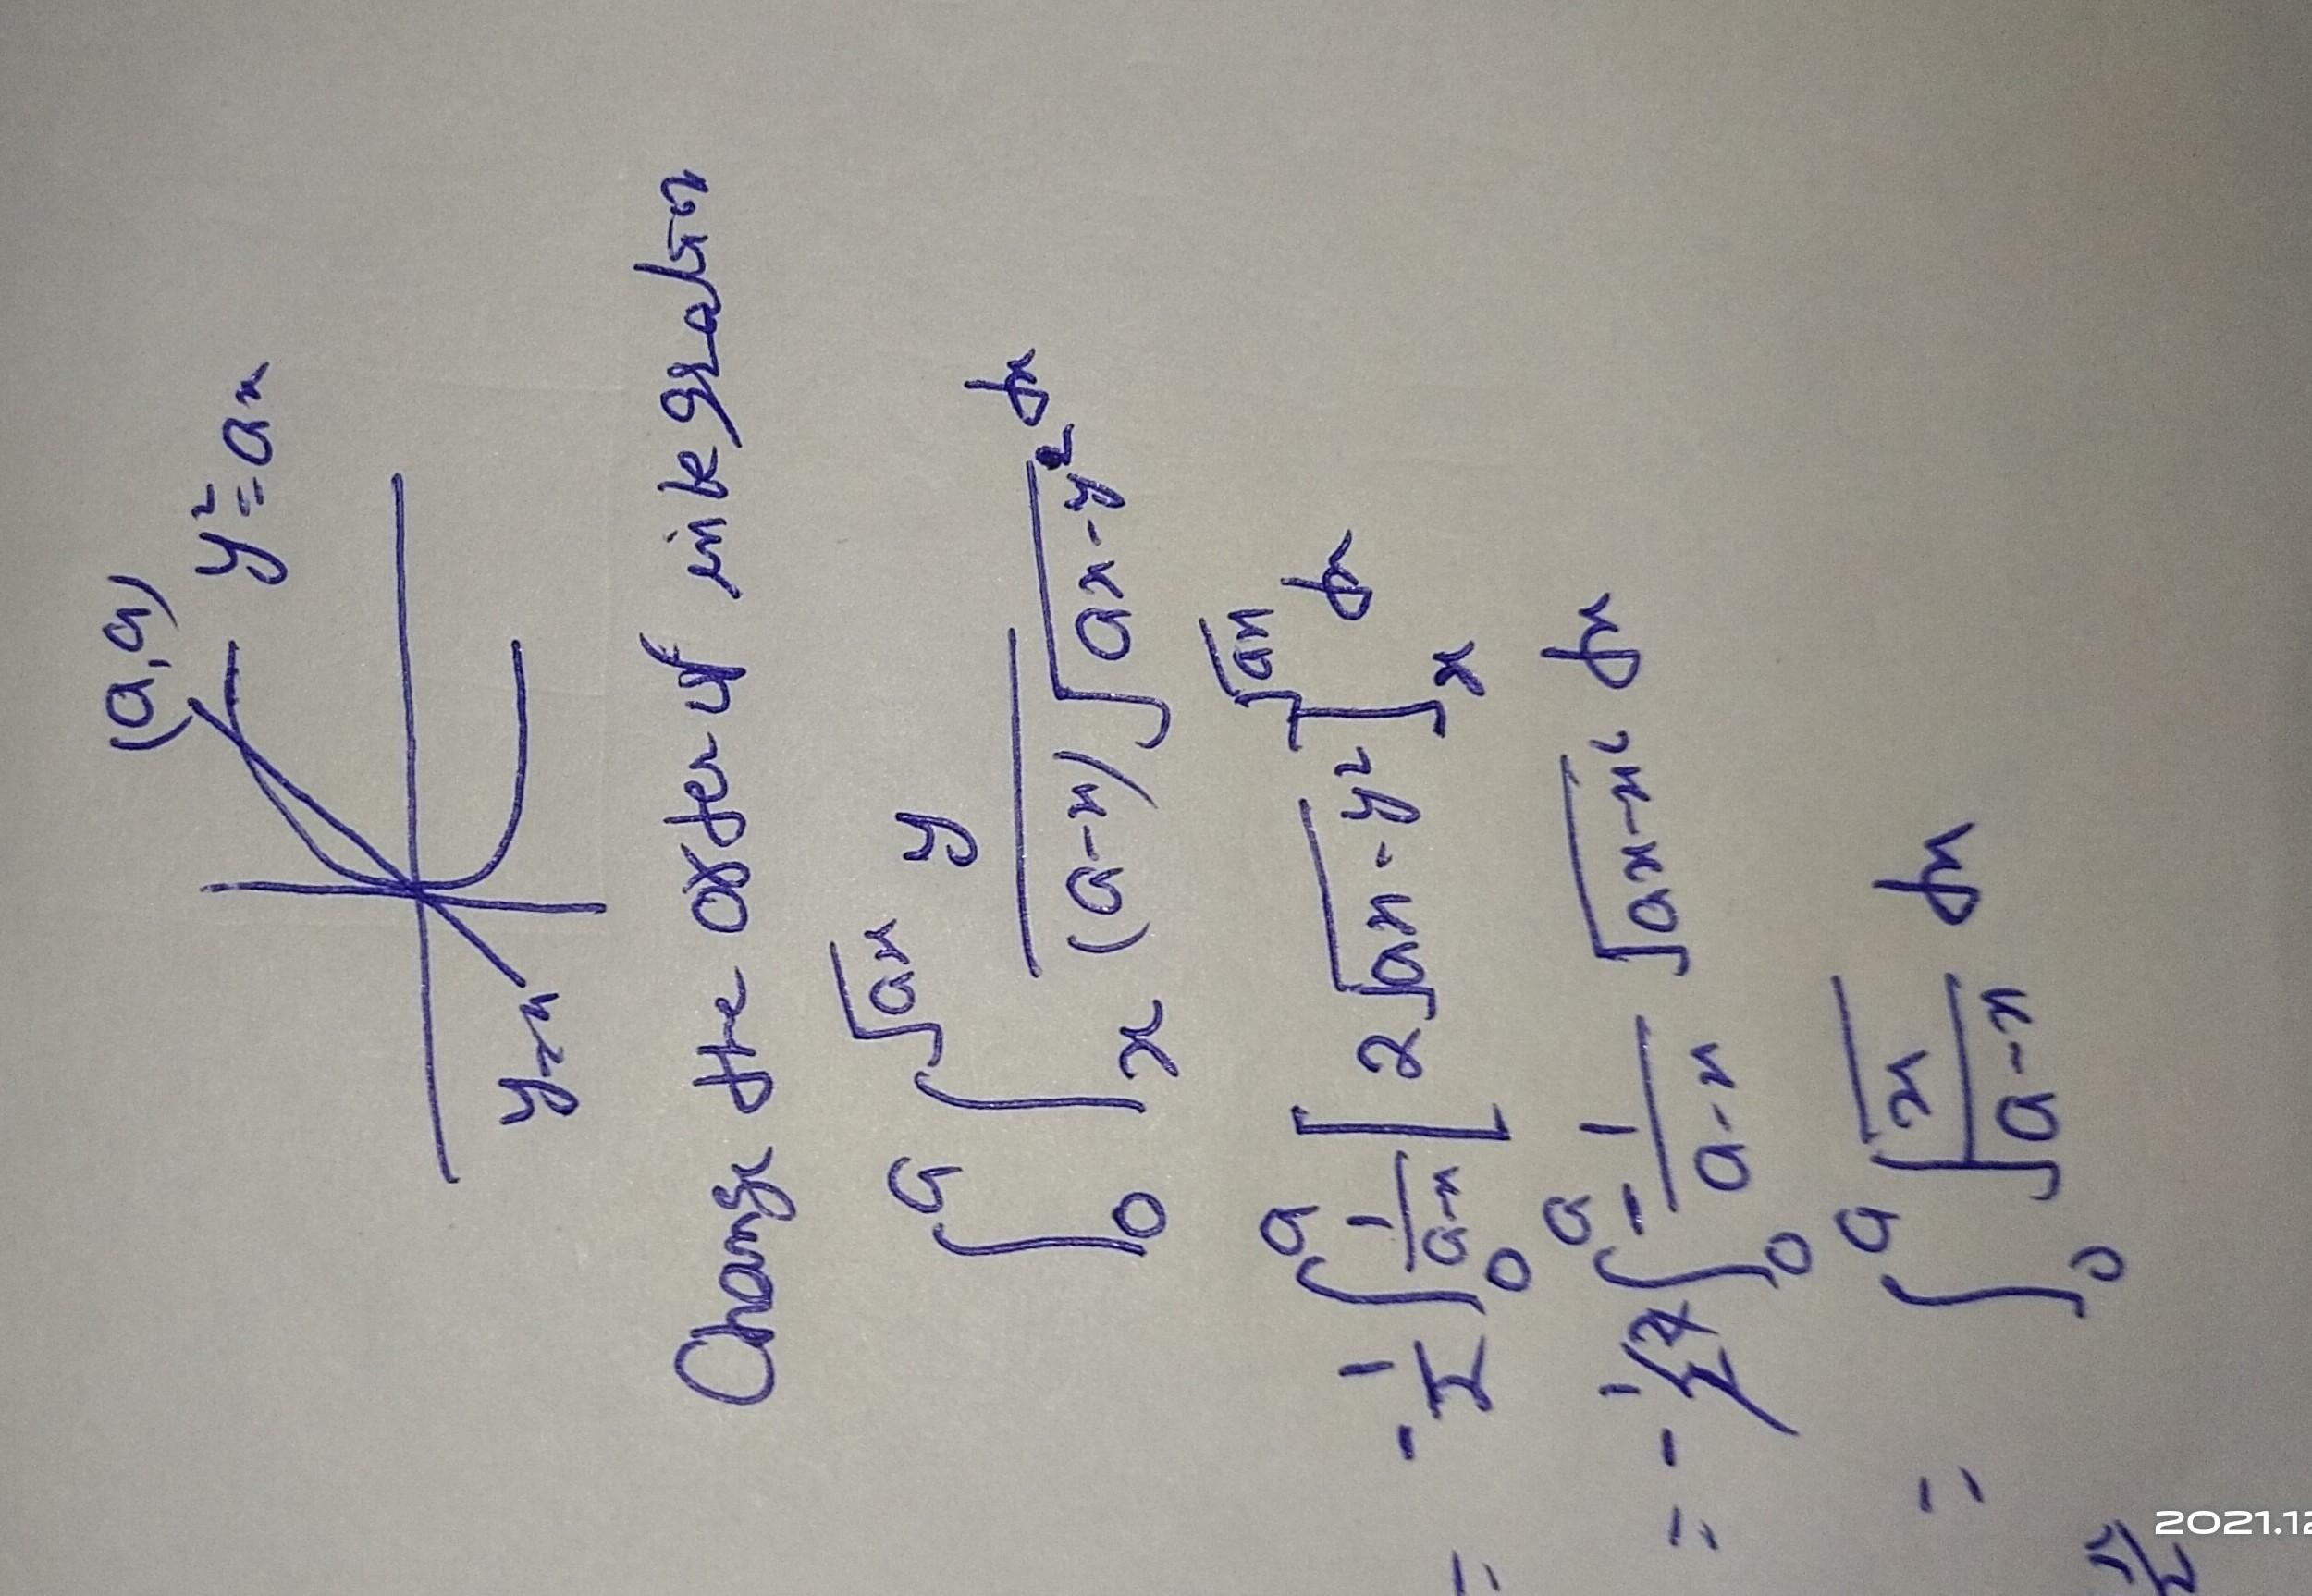 (a,a)
y²=ax
y=x
Change the order of integration
∫₀ᵃ ∫ₓ^√ax y / (a-x)√ax-y² dx
= -1/2 ∫₀ᵃ 1/a-x [2√ax-y²]ₓ^√ax dx
= - ∫₀ᵃ -1/a-x √ax-x² dx
= ∫₀ᵃ √x/a-x dx
2021.12